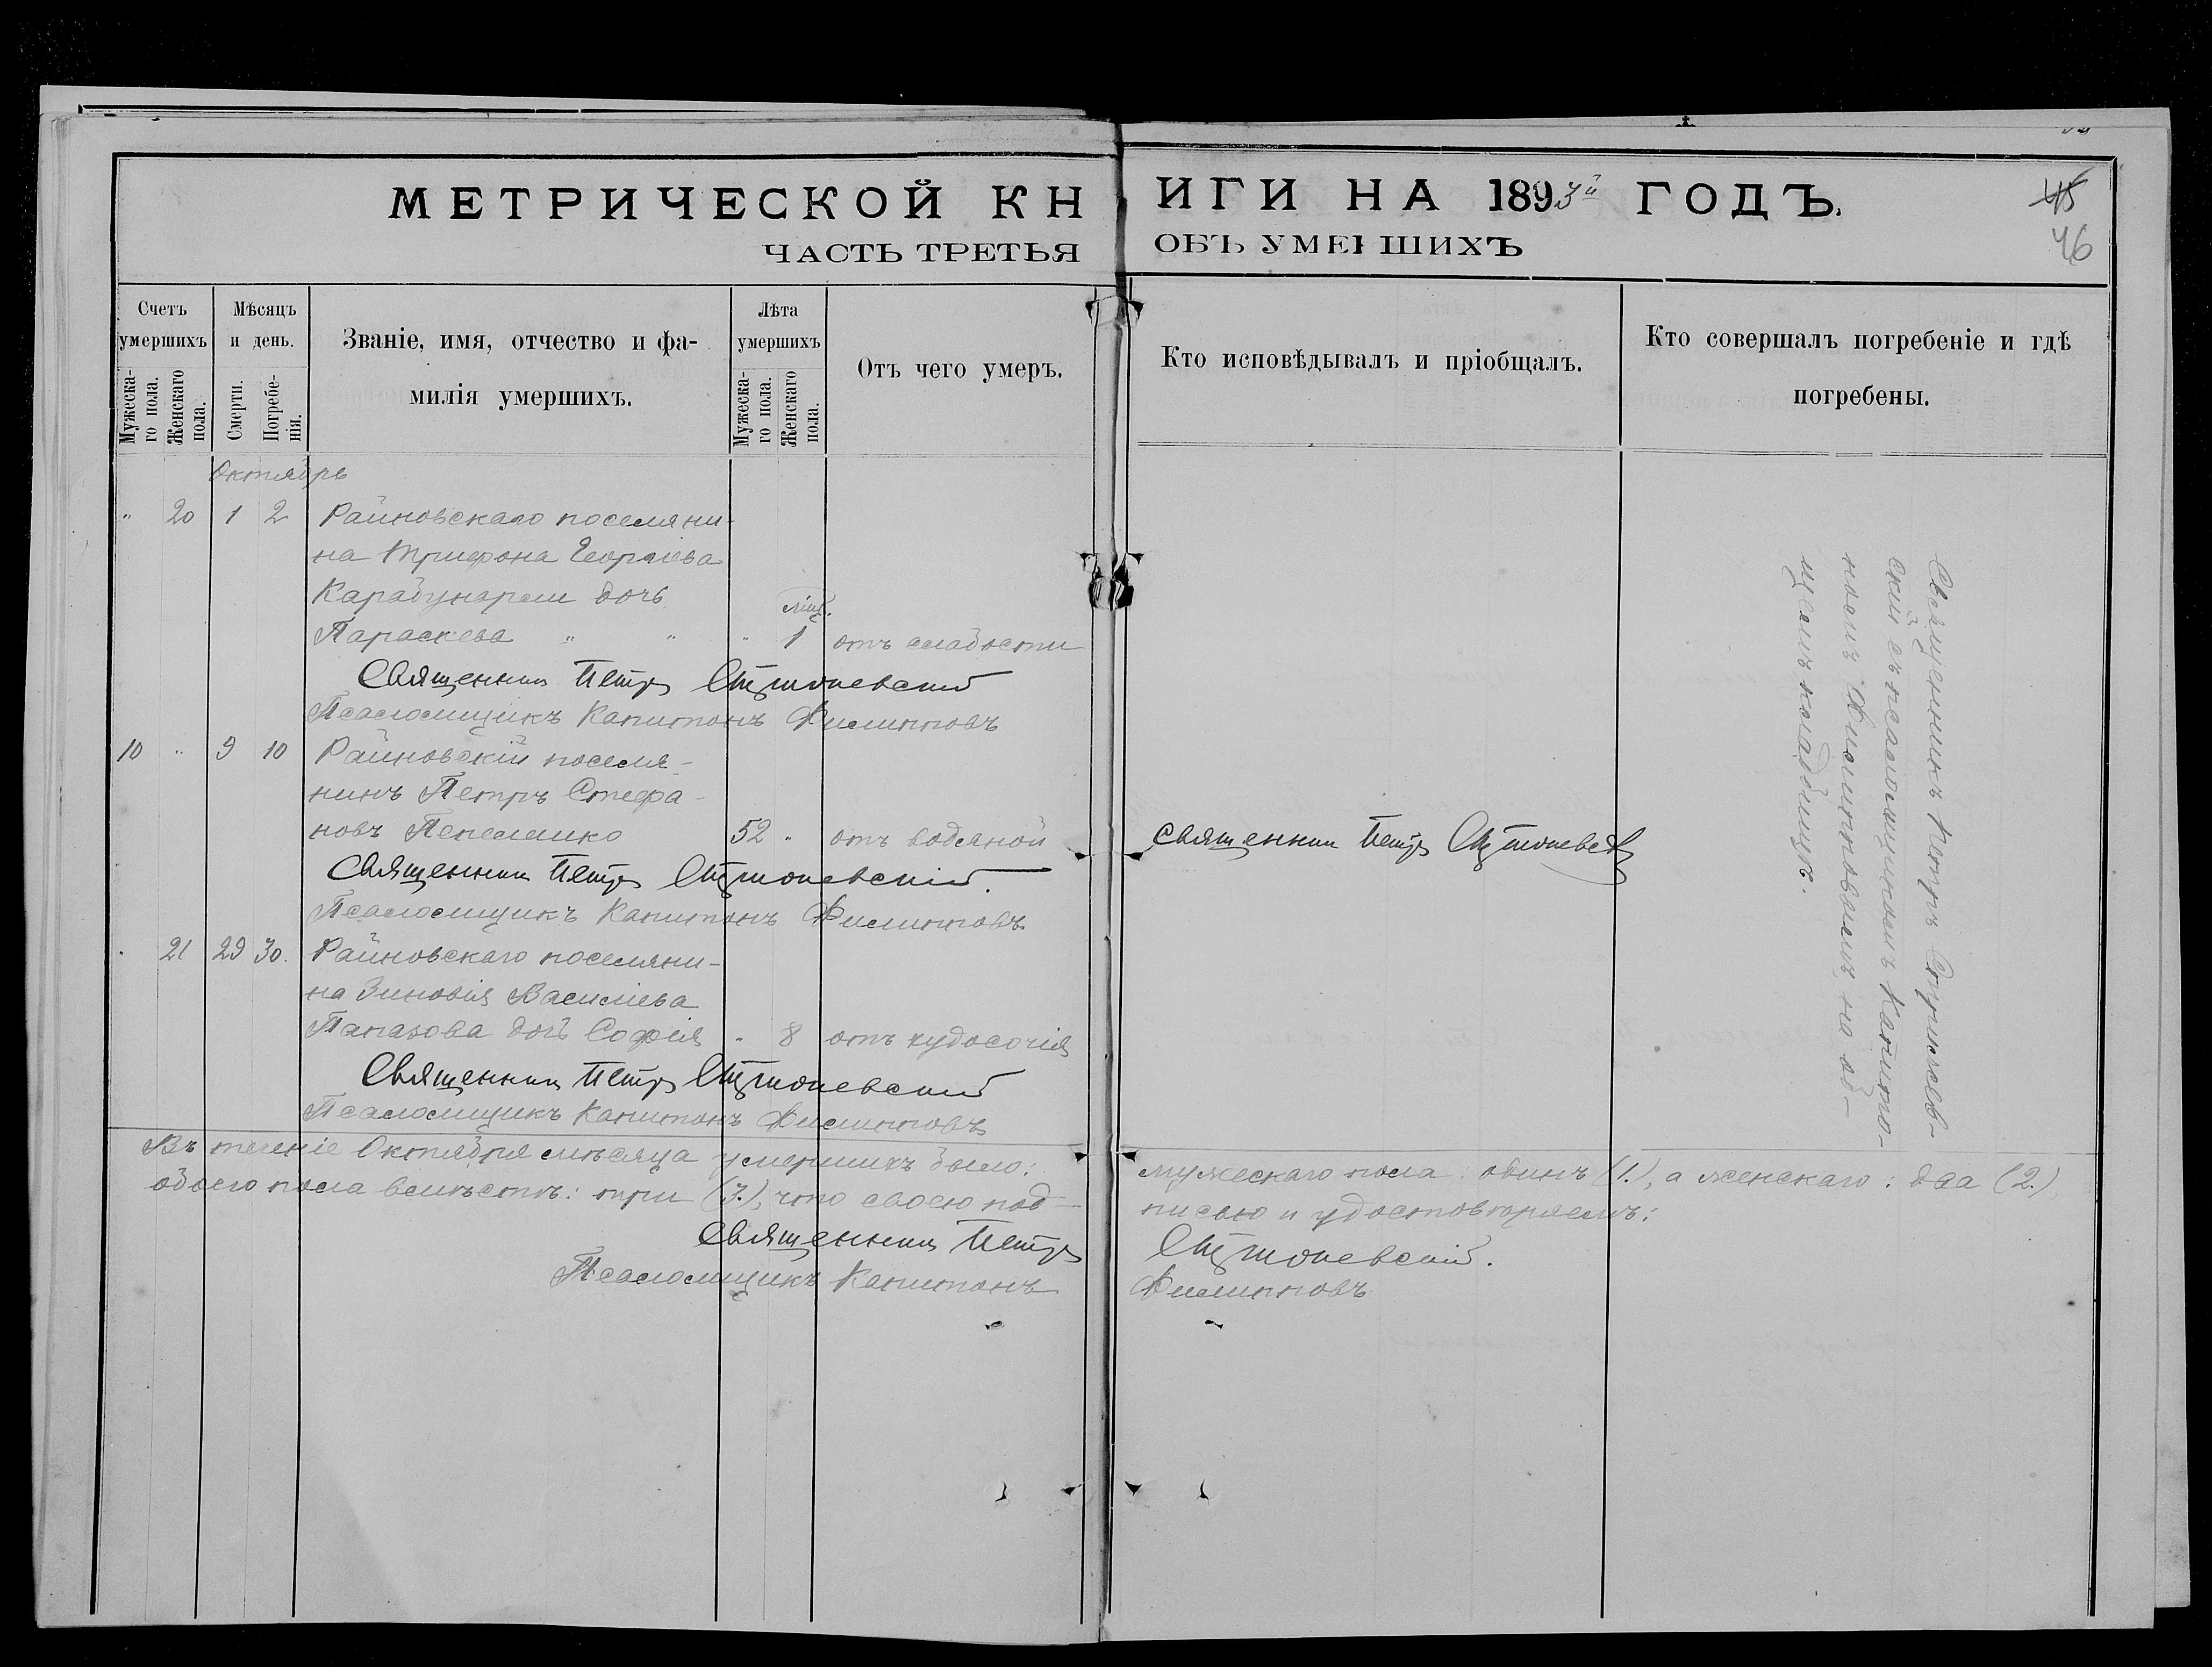 МЕТРИЧЕСКОЙ КНИГИ НА 1893й ГОДЪ.
45
46
ЧАСТЬ ТРЕТЬЯ ОБЪ УМЕРШИХЪ
Счетъ умершихъ
Мужеска-го пола.
Женскаго пола.
Мѣсяцъ и день.
Смерти.
Погребе-нія.
Званіе, имя, отчество и фа-
милія умершихъ.
Лѣта умершихъ
Мужеска-го пола.
Женскаго пола.
Отъ чего умеръ.
Кто исповѣдывалъ и пріобщалъ.
Кто совершалъ погребеніе и гдѣ
погребены.
Октябрь
" 20 1 2 Райновскаго поселяни-
на Трифона Георгіева
Карабунарли дочь
Параскева " " " 1 отъ слабости
Священникъ Петръ
Псаломщикъ Капитонъ Филипповъ
10 " 9 10 Райновскій поселя-
нинъ Петръ Стефа-
новъ Пепелешко 52 " отъ водяной
Священникъ Петръ
Священникъ Петръ
Псаломщикъ Капитонъ Филипповъ
" 21 29 30. Райновскаго поселяни-
на Зиновія Василіева
Папазова дочь Софія " 8 отъ худосочія
Священникъ Петръ
Псаломщикъ Капитонъ Филипповъ
Священникъ Петръ
скій съ псаломщикомъ Капито-
номъ Филипповымъ на об-
щемъ кладбищѣ.
Въ теченіе Октября мѣсяца умершихъ было: мужескаго пола: одинъ (1.), а женскаго: два (2.)
обоего пола вмѣстѣ: три (3.), что своею под-
писью и удостовѣряемъ:
Священникъ Петръ
Псаломщикъ Капитонъ Филипповъ